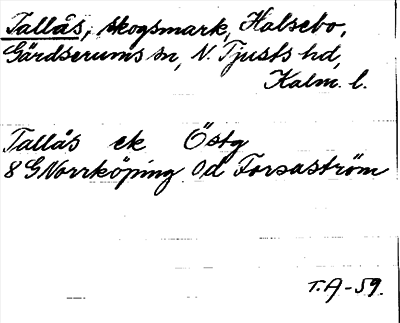 Tallås, skogsmark, Halsebo,
Gärdserums sn, N. Tjusts hd,
Kalm. l.
Tallås ek Östg
8 G Norrköping 0d Forsaström
T.A-59.